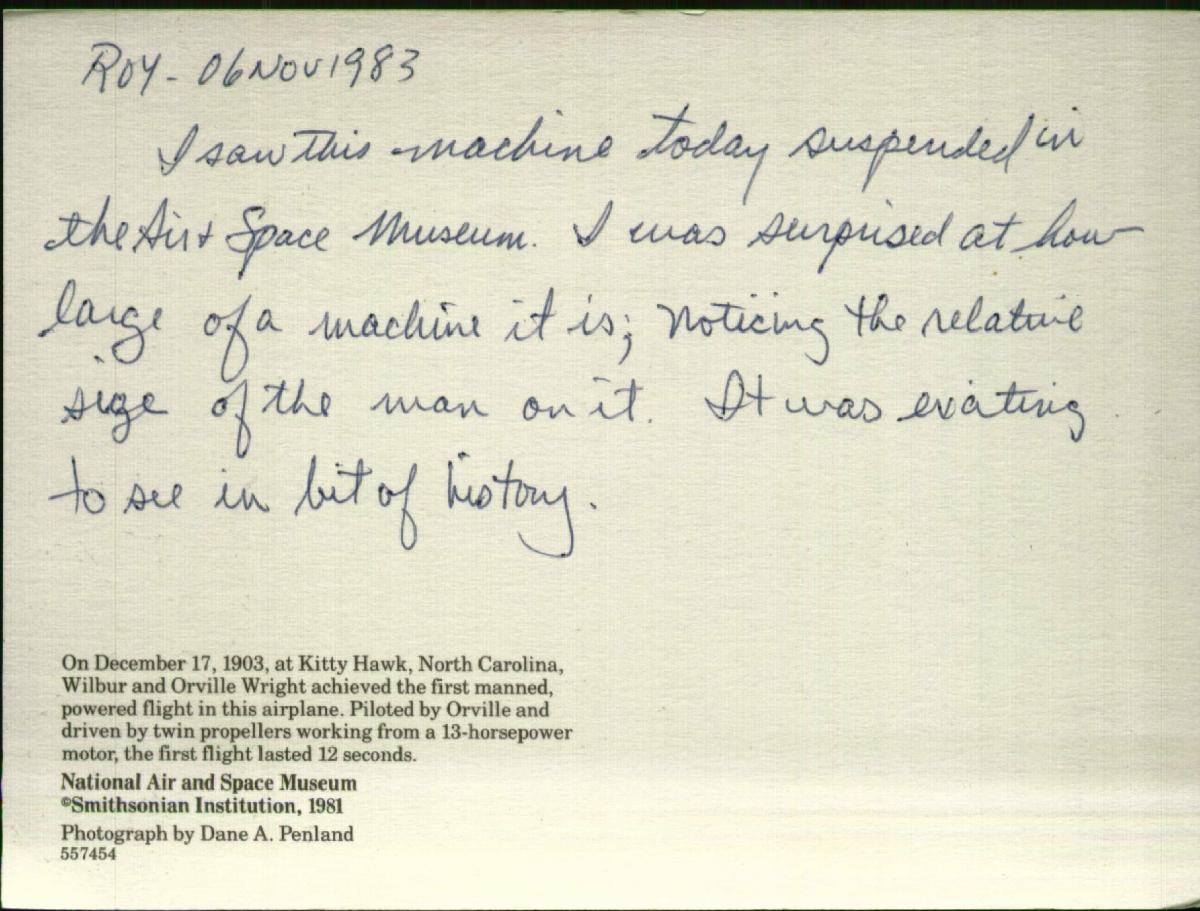 Roy - 06 Nov 1983
I saw this machine today suspended in
the Air & Space Museum. I was surprised at how
large of a machine it is; noticing the relative
size of the man on it. It was exciting
to see in bit of history.
On December 17, 1903, at Kitty Hawk, North Carolina,
Wilbur and Orville Wright achieved the first manned,
powered flight in this airplane. Piloted by Orville and
driven by twin propellers working from a 13-horsepower
motor, the first flight lasted 12 seconds.
National Air and Space Museum
©Smithsonian Institution, 1981
Photograph by Dane A. Penland
557454